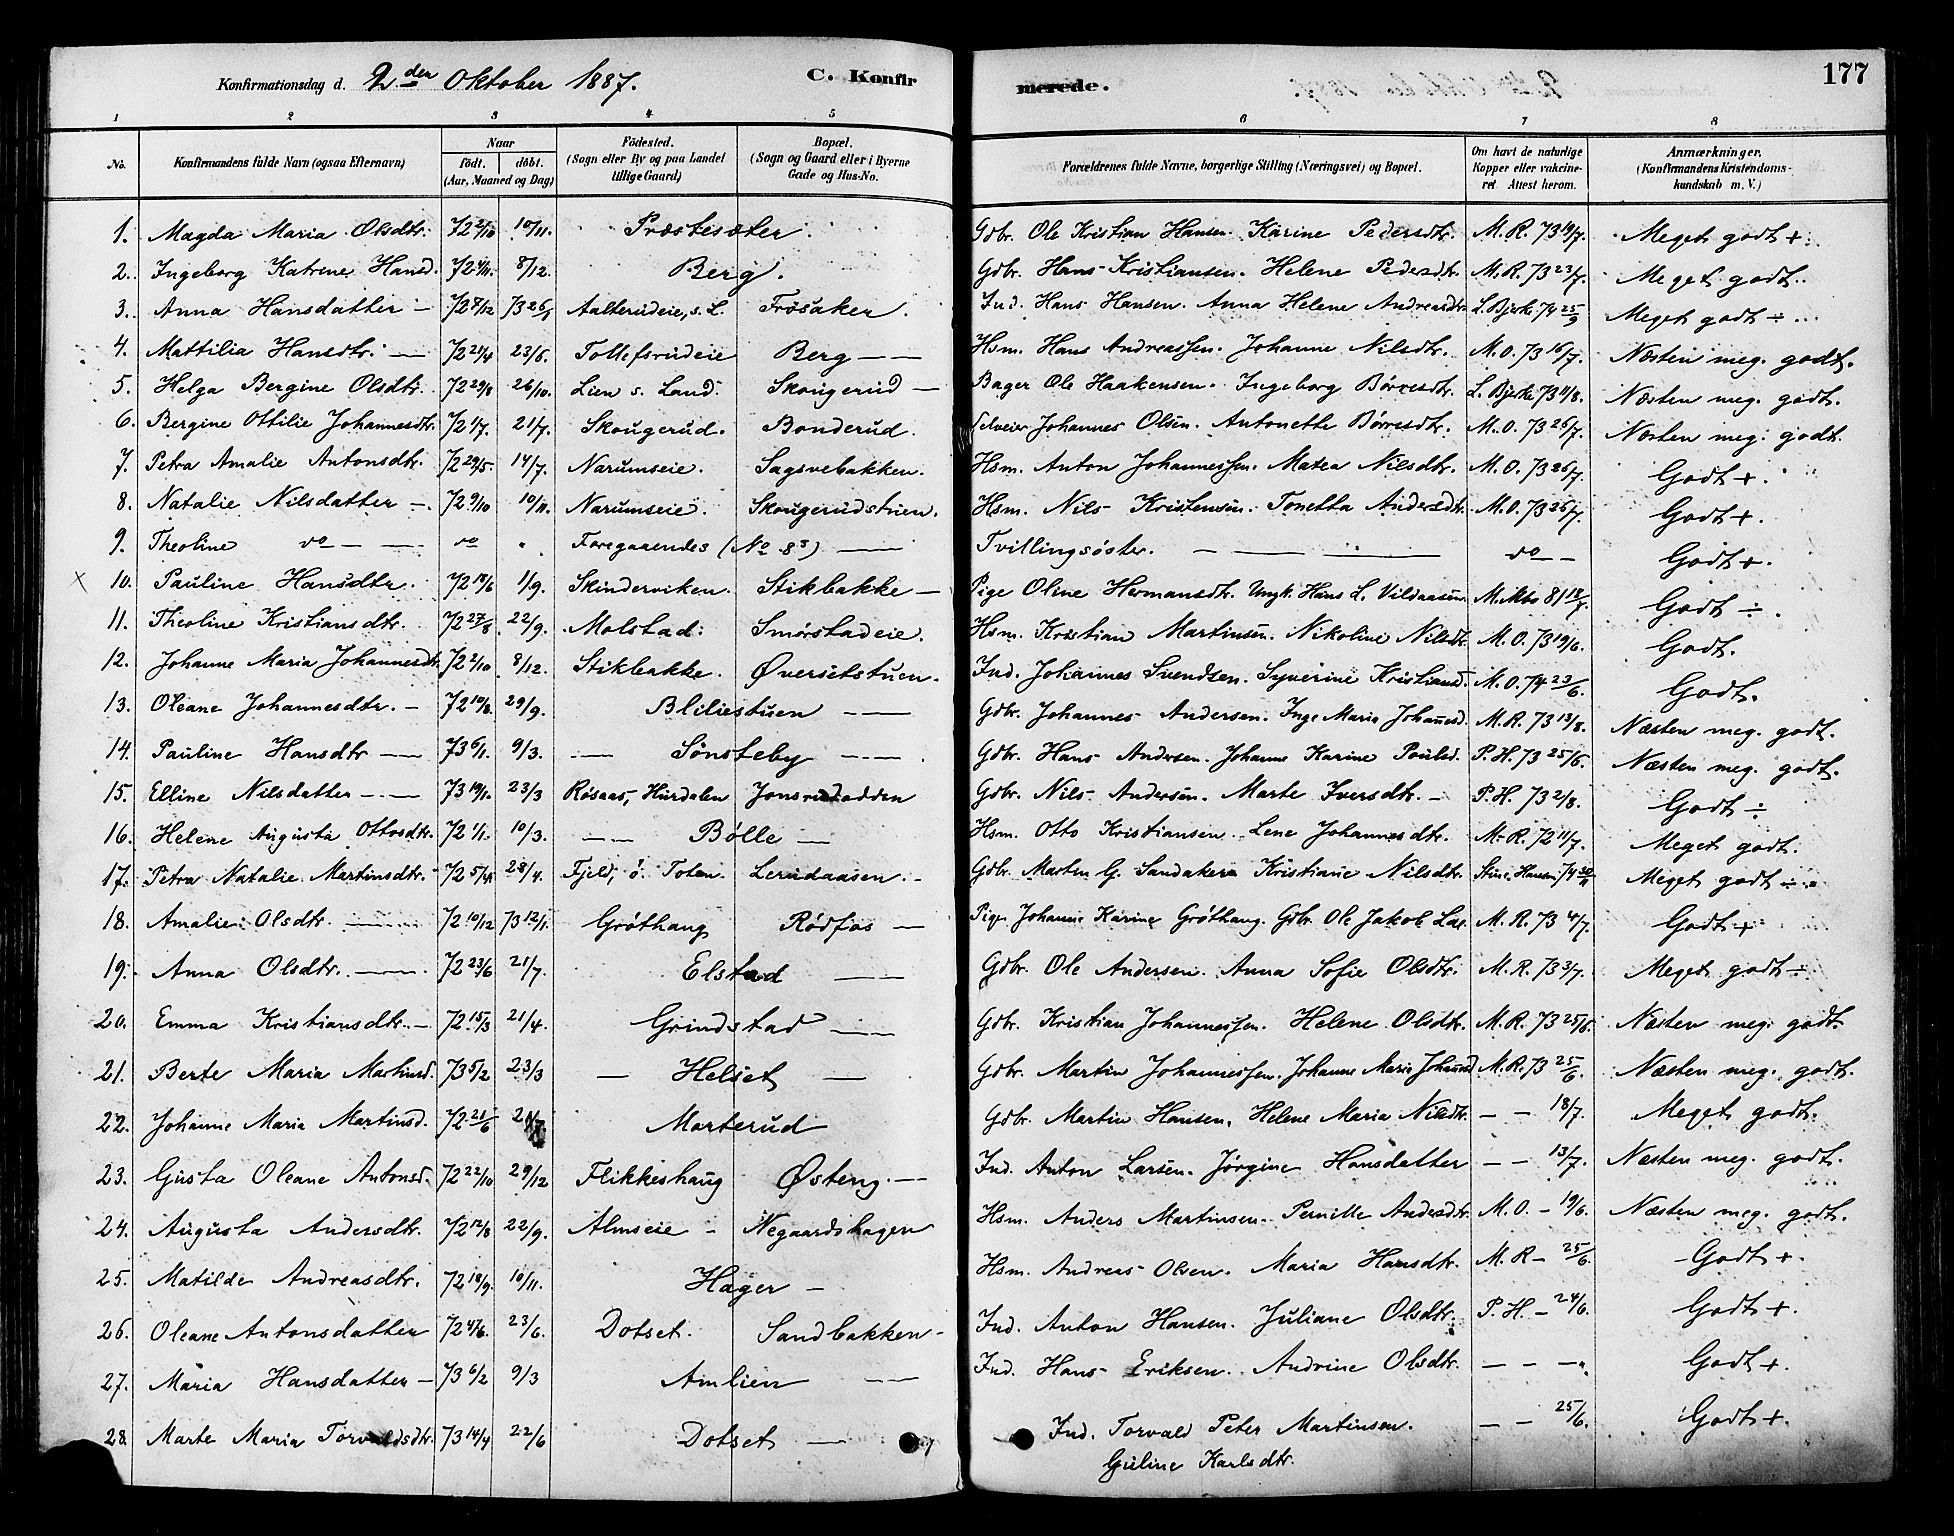 Konfirmationsdag d. 2den Oktober 1887. C. Konfir merede. 177
1 2 3 4 5 6 7 8
No. Konfirmandens fulde Navn (ogsaa Efternavn) Naar født. døbt. (Aar, Maaned og Dag) Fødested. (Sogn eller By og paa Landet tillige Gaard) Bopæl. (Sogn og Gaard eller i Byerne Gade og Hus-No. Forældrenes fulde Navne, borgerlige Stilling (Næringsvei) og Bopæl. Om havt de naturlige Kopper eller vakcineret. Attest herom. Anmærkninger. (Konfirmandens Kristendomskundskab m. V.)
1. Magda Maria Olsdtr. 72 2/10 10/11. Præstesæter. Gdbr. Ole Kristian Hansen. Karine Pedersdtr. M. R. 73 19/7. Meget godt +.
2. Ingeborg Katrine Hansd. 72 4/11. 8/12. Berg. Gdbr. Hans Kristiansen. Helene Pedersdtr. M. R. 73 23/7. Meget godt.
3. Anna Hansdatter — 72 8/12 73 26/1 Aalterudeie, s. L. Frøsaker. Ind. Hans Hansen. Anna Helene Andreasdtr. L. Bjerke 74 25/9 Meget godt ÷.
4. Mattilia Hansdtr. — 72 21/4 23/6. Tollefsrudeie Berg — Hsm. Hans Andreassen. Johanne Nilsdtr. M. O. 73 16/7. Næsten meg. godt.
5. Helga Bergine Olsdtr. 72 29/8 26/10. Lien s. Land. Skougerud — Bager Ole Haakensen. Ingeborg Børresdtr. L. Bjerke 73 11/8. Næsten meg. godt.
6. Bergine Ottilie Johannesdtr. 72 1/7. 21/7. Skougerud. Bonderud. Selveier Johannes Olsen. Antonette Børresdtr. M. O. 73 26/7. Næsten meg. godt.
7. Petra Amalie Antonsdtr. 72 29/5. 14/7. Narumseie. Sagsvebakken. Hsm. Anton Johannessen. Matea Nilsdtr. M. O. 73 26/7. Godt +.
8. Natalie Nilsdatter —. 72 9/10 10/11. Narumseie. Skougerudstuen. Hsm. Nils Kristensen. Tonetta Andersdtr. M. O. 73 26/7. Godt +.
9. Theoline do — do " Foregaaendes (No 8s) — Tvillingsøster. — do — Godt +.
x 10. Pauline Hansdtr. 72 18/6 1/9. Skinderviken. Stikbakke — Pige Oline Hermansdtr. Ungk. Hans L. Vildaasen. 81 Godt ÷.
11. Theoline Kristiansdtr. 72 27/8 22/9. Molstad. Smørstadeie. Hsm. Kristian Martinsen. Nikoline Nilsdtr. M. O. 73 19/6. Godt.
12. Johanne Maria Johannesdtr. 72 2/10 8/12. Stikbakke. Øversetstuen. Ind. Johannes Svendsen. Syverine Kristiansd. M. O. 74 23/6. Godt.
13. Oleane Johannesdtr. — 72 10/8. 29/9. Bliliestuen — Gdbr. Johannes Andersen. Inge Maria Johannesd. M. R. 73 13/8. Næsten meg. godt.
14. Pauline Hansdtr — 73 6/1. 9/3. — Sønsteby — Gdbr. Hans Andersen. Johanne Karine Poulsd. P. H. 73 25/6. Næsten meg. godt.
15. Elline Nilsdatter — 73 19/1. 23/3 Røsaas, Hurdalen Jonsrudodden Gdbr. Nils Andersen. Marte Iversdtr. — P. H. 73 2/8. Godt ÷
16. Helene Augusta Ottosdtr. 72 1/1. 10/3. — Bølle — Hsm. Otto Kristiansen. Lene Johannesdtr. M. R. 72 11/7. Meget godt.
17. Petra Natalie Martinsdtr. 72 28/4. Fjeld, ø. Toten. Lerudaasen. — Gdbr. Marten G. Sandaker. Kristiane Nilsdtr. Stine Hansen 74 30/11 Meget godt ÷.
18. Amalie Olsdtr. — 72 10/12 73 12/1. Grøthaug Rødfos — Pige Johanne Karine Grøthaug. Gdbr. Ole Jakob M. R. 73 4/7. Godt +
19. Anna Olsdtr. — 72 23/6 21/7. Elstad — Gdbr. Ole Andersen. Anna Sofie Olsdtr. M. R. 73 3/7. Meget godt ÷
20. Emma Kristiansdtr. — 72 15/3 21/4. Grindstad — Gdbr. Kristian Johannessen. Helene Olsdtr. M. R. 73 25/6. Næsten meg. godt.
21. Berte Maria Martinsd. 73 5/2 23/3 — Helset — Gdbr. Martin Johannessen. Johanne Marie Johannesd M. R. 73 25/6. Næsten meg. godt.
22. Johanne Maria Martinsd. 72 21/6 Marterud Gdbr. Martin Hansen. Helene Maria Nilsdtr. — — 18/7. Meget godt.
23. Gusta Oleane Antonsd. 72 22/10 29/12 Flikkeshaug Østeng. — Ind. Anton Larsen. Jørgine Hansdatter — — 13/7. Næsten meg. godt.
24. Augusta Andersdtr. 72 12/8 22/9. Almseie — Negaardshagen Hsm. Anders Martinsen. Pernille Andersdtr. M. O. — 19/6. Næsten meg. godt.
25. Matilde Andreasdtr. 72 18/9. 10/11. Hager — Hsm. Andreas Olsen. Maria Hansdtr. M. R — 25/6. Godt +.
26. Oleane Antonsdatter 72 4/6. 23/6. Dotset. Sandbakken — Ind. Anton Hansen. Juliane Olsdtr. P. H — 24/6. Godt +.
27. Maria Hansdatter — 73 6/2 9/3 Amlien — Ind. Hans Eriksen. Andrine Olsdtr. — — — " Godt +.
28. Marte Maria Torvaldsdtr. 73 14/4 22/6 Dotset — Ind. Torvald Peter Martinsen. — — 25/6. Godt +.
Guline Karlsdtr.